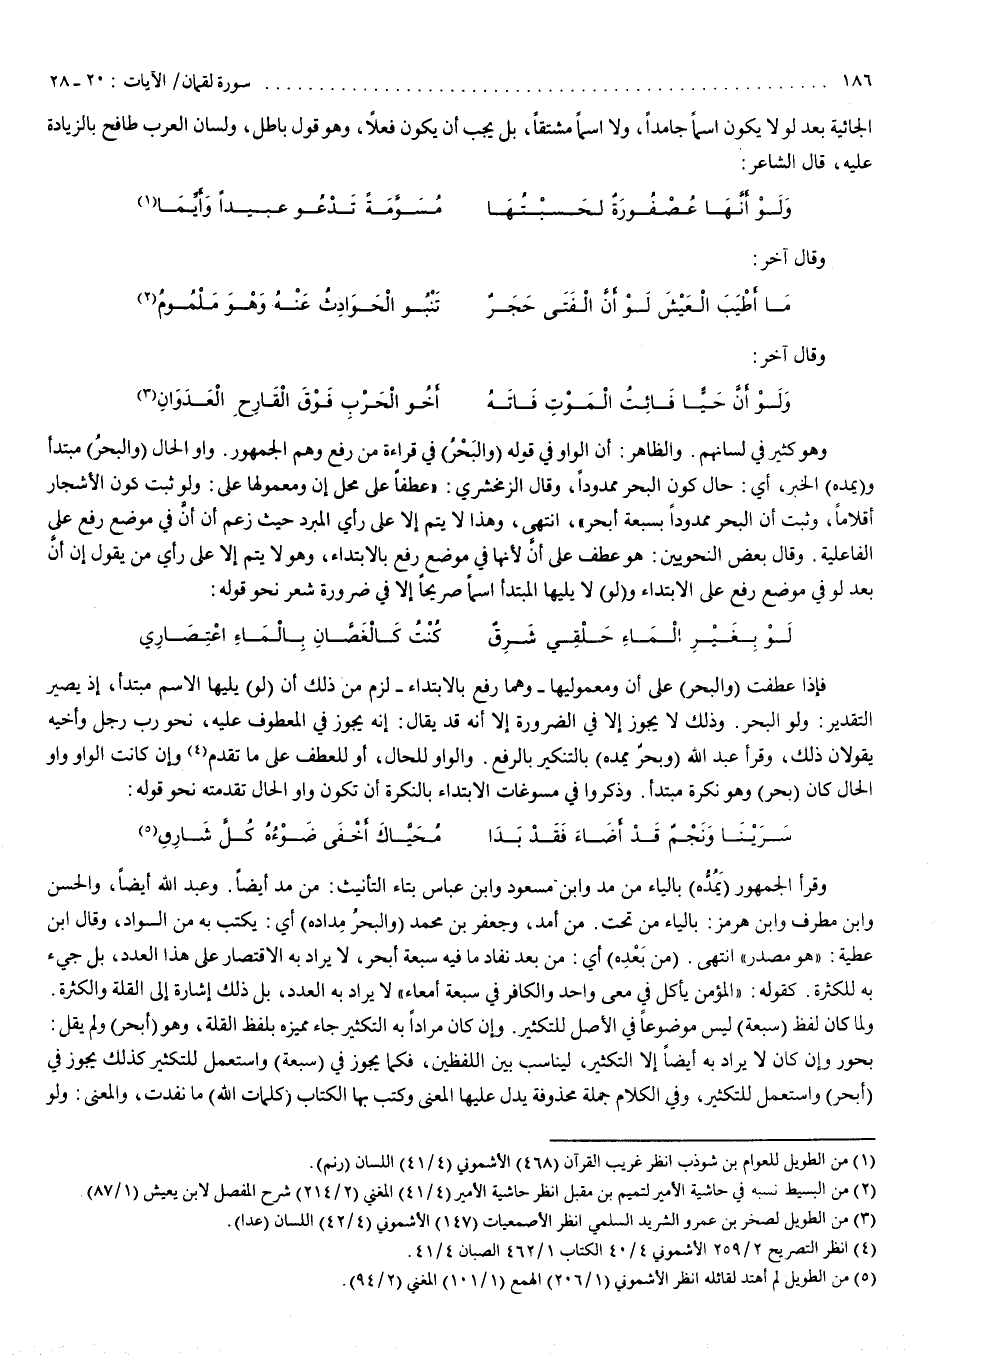 ١٨٦ ........................................ سورة لقمان/ الآيات : ٢٠ ـ ٢٨
الجائية بعد لو لا يكون اسماً جامداً، ولا اسماً مشتقاً، بل يجب أن يكون فعلاً، وهو قول باطل، ولسان العرب طافح بالزيادة
عليه، قال الشاعر:
وَلَوْ أَنَّهَا عُصْفُورَةٌ لحَسِبْتُهَا مُسَوَّمَةً تَدْعُو عبيداً وَأَيُّمَا(١)
وقال آخر:
مَا أَطْيَبَ الْعَيْشَ لَوْ أَنَّ الْفَتَى حَجَرٌ تَنْبُو الْحَوادِثُ عَنْهُ وَهْوَ مَلْمُومُ(٢)
وقال آخر:
وَلَوْ أَنَّ حَيًّا فَائِتُ الْمَوْتِ فَاتَهُ أَخُو الْحَرْبِ فَوْقَ القَارِحِ الْعَدَوَانِ(٣)
وهو كثير في لسانهم. والظاهر: أن الواو في قوله (والبَحْرُ) في قراءة من رفع وهم الجمهور. واو الحال (والبحرُ) مبتدأ
و(يمده) الخبر، أي: حال كون البحر ممدوداً، وقال الزمخشري: «عطفاً على محل إن ومعمولها على: ولو ثبت كون الأشجار
أقلاماً، وثبت أن البحر ممدوداً بسبعة أبحر»، انتهى، وهذا لا يتم إلا على رأي المبرد حيث زعم أن أنَّ في موضع رفع على
الفاعلية. وقال بعض النحويين: هو عطف على أنَّ لأنها في موضع رفع بالابتداء، وهو لا يتم إلا على رأي من يقول إن أنَّ
بعد لو في موضع رفع على الابتداء و(لو) لا يليها المبتدأ اسماً صريحاً إلا في ضرورة شعر نحو قوله:
لَوْ بِغَيْرِ الْمَاءِ حَلْقِي شَرِقٌ كُنْتُ كَالْغَصَّانِ بِالْمَاءِ اعْتِصَارِي
فإذا عطفت (والبحر) على أن ومعموليها ـ وهما رفع بالابتداء ـ لزم من ذلك أن (لو) يليها الاسم مبتدأ، إذ يصير
التقدير: ولو البحر. وذلك لا يجوز إلا في الضرورة إلا أنه قد يقال: إنه يجوز في المعطوف عليه، نحو رب رجل وأخيه
يقولان ذلك، وقرأ عبد الله (وبحرٌ يمده) بالتنكير بالرفع. والواو للحال، أو للعطف على ما تقدم(٤) وإن كانت الواو واو
الحال كان (بحر) وهو نكرة مبتدأ. وذكروا في مسوغات الابتداء بالنكرة أن تكون واو الحال تقدمته نحو قوله:
سَرَيْنَا وَنَجْمٌ قَدْ أَضَاءَ فَقَدْ بَدَا مُحَيَّاكَ أَخْفَى ضَوْءُهُ كُلَّ شَارِقِ(٥)
وقرأ الجمهور (يَمُدُّه) بالياء من مد وابن مسعود وابن عباس بتاء التأنيث: من مد أيضاً. وعبد الله أيضاً، والحسن
وابن مطرف وابن هرمز: بالياء من تحت. من أمد، وجعفر بن محمد (والبحرُ مِداده) أي: يكتب به من السواد، وقال ابن
عطية: «هو مصدر» انتهى. (من بَعْدِه) أي: من بعد نفاد ما فيه سبعة أبحر، لا يراد به الاقتصار على هذا العدد، بل جيء
به للكثرة. كقوله: «المؤمن يأكل في معى واحد والكافر في سبعة أمعاء» لا يراد به العدد، بل ذلك إشارة إلى القلة والكثرة.
ولما كان لفظ (سبعة) ليس موضوعاً في الأصل للتكثير. وإن كان مراداً به التكثير جاء مميزه بلفظ القلة، وهو (أبحر) ولم يقل:
بحور وإن كان لا يراد به أيضاً إلا التكثير، ليناسب بين اللفظين، فكما يجوز في (سبعة) واستعمل للتكثير كذلك يجوز في
(أبحر) واستعمل للتكثير، وفي الكلام جملة محذوفة يدل عليها المعنى وكتب بها الكتاب (كلمات الله) ما نفدت، والمعنى: ولو
(١) من الطويل للعوام بن شوذب انظر غريب القرآن (٤٦٨) الأشموني (٤١/٤) اللسان (رنم).
(٢) من البسيط نسبه في حاشية الأمير لتميم بن مقبل انظر حاشية الأمير (٤١/٤) المغني (٢١٤/٢) شرح المفصل لابن يعيش (٨٧/١).
(٣) من الطويل لصخر بن عمرو الشريد السلمي انظر الأصمعيات (١٤٧) الأشموني (٤٢/٤) اللسان (عدا).
(٤) انظر التصريح ٢٥٩/٢ الأشموني ٤٠/٤ الكتاب ٤٦٢/١ الصبان ٤١/٤.
(٥) من الطويل لم أهتد لقائله انظر الأشموني (٢٠٦/١) الهمع (١٠١/١) المغني (٩٤/٢).